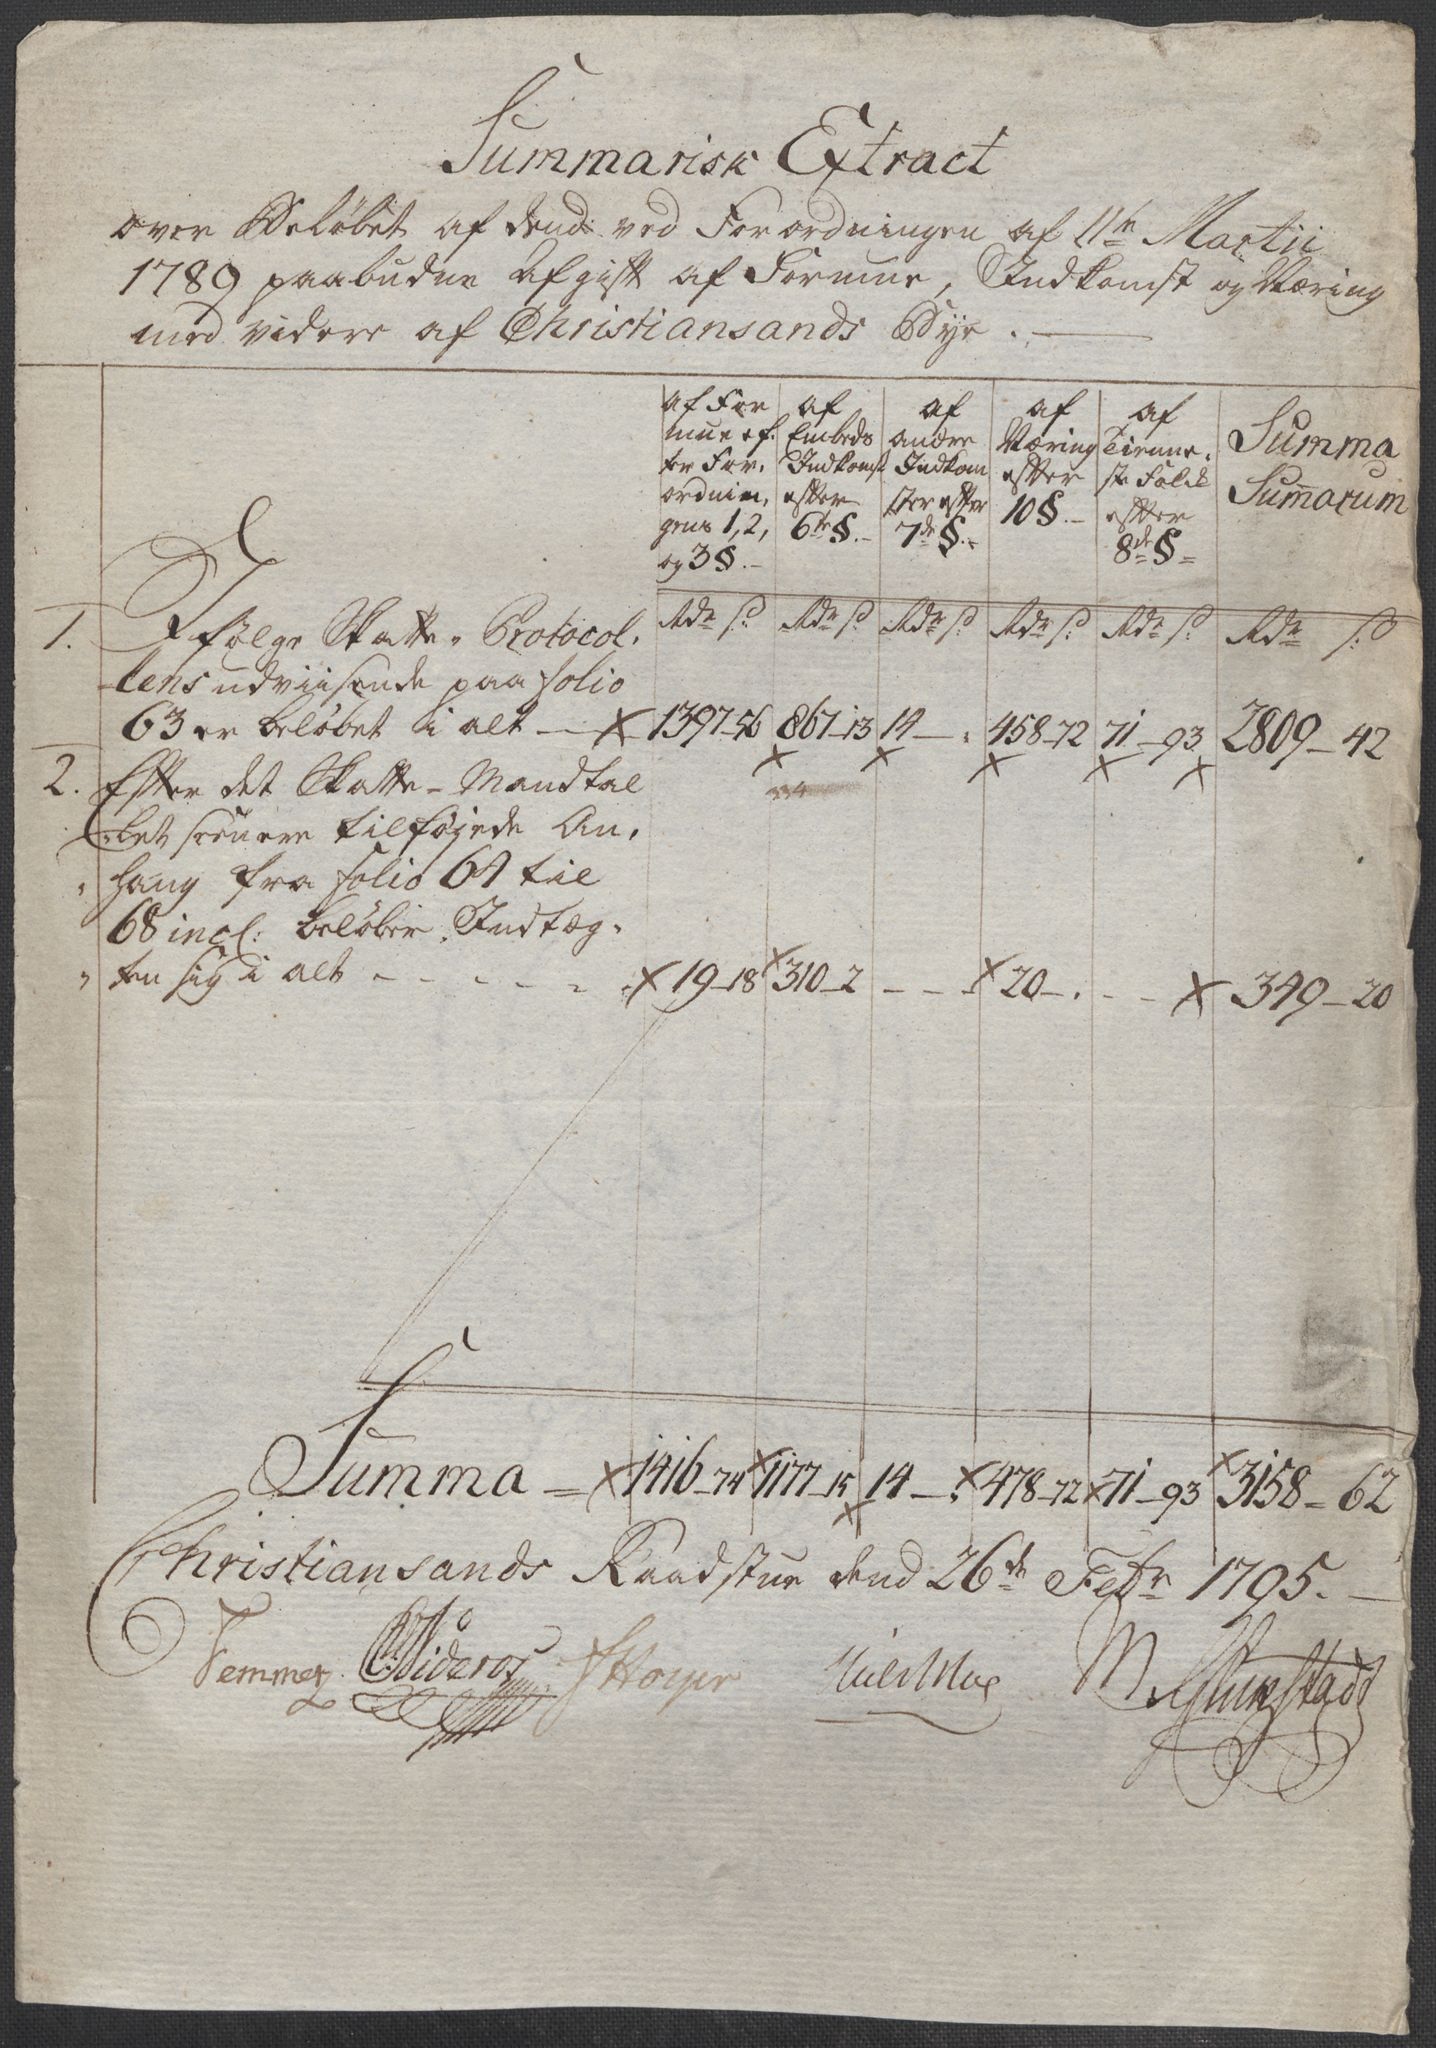 Summarisk Extract
over Beløbet af dend ved Forordningen af 11te Martii
1789 paabudne Afgift af Formue, Indkomst og Næring
med videre af Christiansands Bye.
af For
mue ef.
ter For.
ordnin,
gens 1, 2,
og 3 §.
af
Embeds
Indkomst
efter
6te §.
af
andre
Indkom
ster efter
7de §.
af
Næring
efter
10 §.
af
Tienne,
ste Folck
efter
8de §
Summa
Summarum
Rdr s. Rdr s Rdr s Rdr s Rdr s Rdr s
1. Ifølge Skatte-Protocol,
lens udviisende paa folio
63 er beløbet i alt — x 1397-56 867-13 14 — . 458-72 71-93 2809-42
x x x x x
2. Efter det Skatte-Mandtal
let seenere tilføjede An,
hang fra folio 64 til
68 incl: beløber Indtæg,
ten sig i alt - - - - - x 19-18 x 310-2 - - - x 20 - . - - x 349-20
Summa = x 1416-74 x 1177-15 x 14 - . x 478-72 x 71-93 x 3158-62
Christiansands Raadstue dend 26de Febr 1795.
Femmer Nideros Hoyer Niels Moe